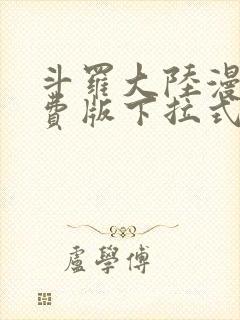 斗羅大陸漫
費版下拉式
盧學傅